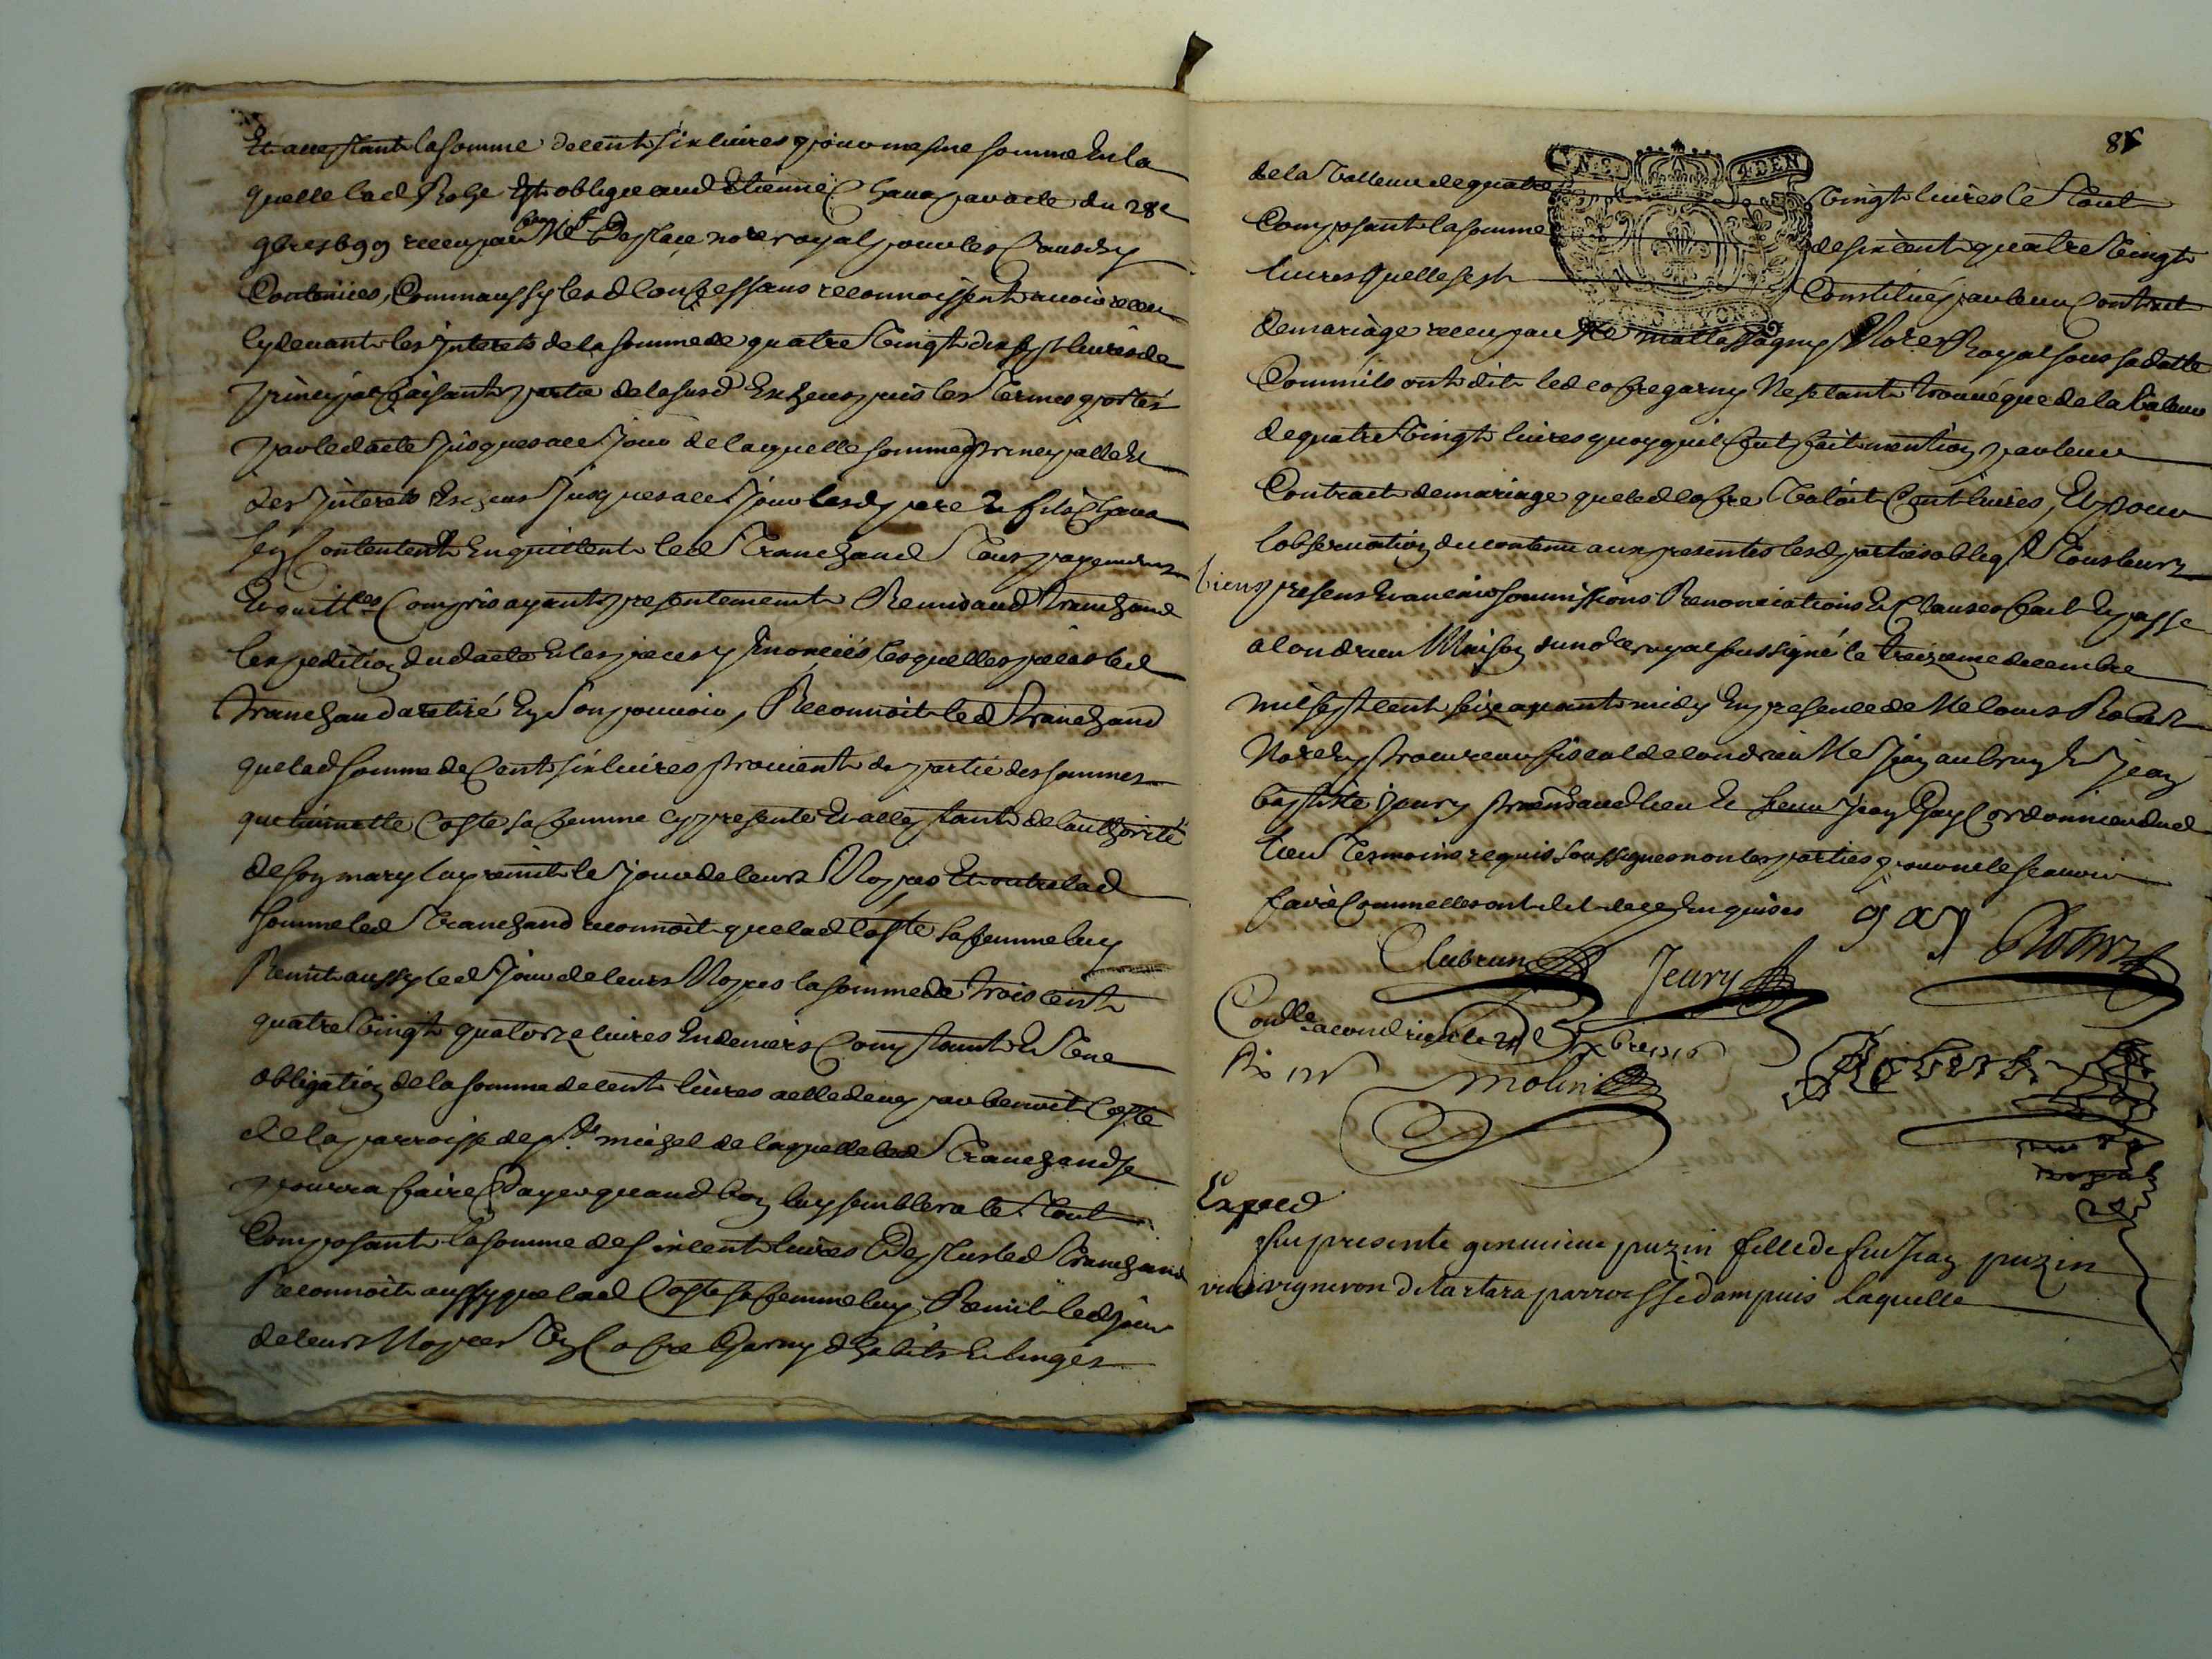 Et acceptant la somme de cent six livres pour mesme somme en la
quelle lad Roche est obligee aud Etienne Chana par acte du 28e
9bre 1699 receu par Me Desplace nore royal pour les causes y
Contenües, Comm'aussy lesd Confessans reconnoissent avoir receu
cy devant les jnterets de la somme de quatre vingt dix sept livres de
principal faisant partie de la susd
par led acte jusques a ce jour de laquelle somme principalle et
des jnterets jusques a ce jour lesd pere et fils Chana
sen Contentent en quittent led Tranchand
Compris ayant presentement Remis aud Tranchand
lexpedition dud acte et les pieces y Enoncées lesquelles pieces led
Tranchand a retiré en son pouvoir, Reconnoit led Tranchand
que lad somme de Cent six livres provient de partie des sommes
que Coste sa femme cy presente et acceptant de lauthorité
de son mary luy remit le jour de leurs Nopces Et outre lad
somme led Tranchand reconnoit que lad Coste sa femme luy
Remit aussy led jour de leurs Nopces la somme de trois cent
quatre vingt quatorze livres en deniers Comptant et une
obligation de la somme de cent livres a elle deue par benoit Coste
de la parroisse de St michel de laquelle led Tranchand se
pourra faire Payer quand bon luy semblera le tout
Composant la somme de six cent livres De plus led Tranchand
Reconnoit aussy que lad Coste sa femme luy Remit led jour
de leurs Nopces un Cofre Garny d'habits et linges
81
de la valleur de quatre vingt livres le tout
Composant la somme de six cent quatre vingt
livres quelle sest Constitué par leur Contract
de mariage receu par Me Nore Royal sous sa datte
Comm'ils ont dit led cofre garny Nestant trouvé que de la valeur
de quatre vingt livres quoyquil fut fait mention par leur
Contract de mariage que led Cofre valoit Cent livres, Et pour
l'observation du contenu aux presentes lesd parties oblig tous leurs
biens presens et avenir soumissions Renonciations et Clauses fait et passé
a Condrieu Maison du nore royal soussigné le treizieme decembre
mil sept cent seize avant midy En presence de Me louis Robert
Nore et procureur fiscal de Condrieu Me jean aubrun et jean
baptiste jeury dud lieu et sieur jean Gay Cordonnier dud
lieu tesmoins requis soussignes non les parties pour ne le scavoir
faire Comm'elles ont dit de ce Enquises
gay
Aubrun
Jeury
Robert
Conllé a condrieu le 24e Xbre 1716
Molin
Robert
nore
royal
Exped
Fut presente genevieve puzin fille de feu Jean puzin
vivant vigneron de tartara parroisse dampuis laquelle
N. 2.
4 DEN
LYON